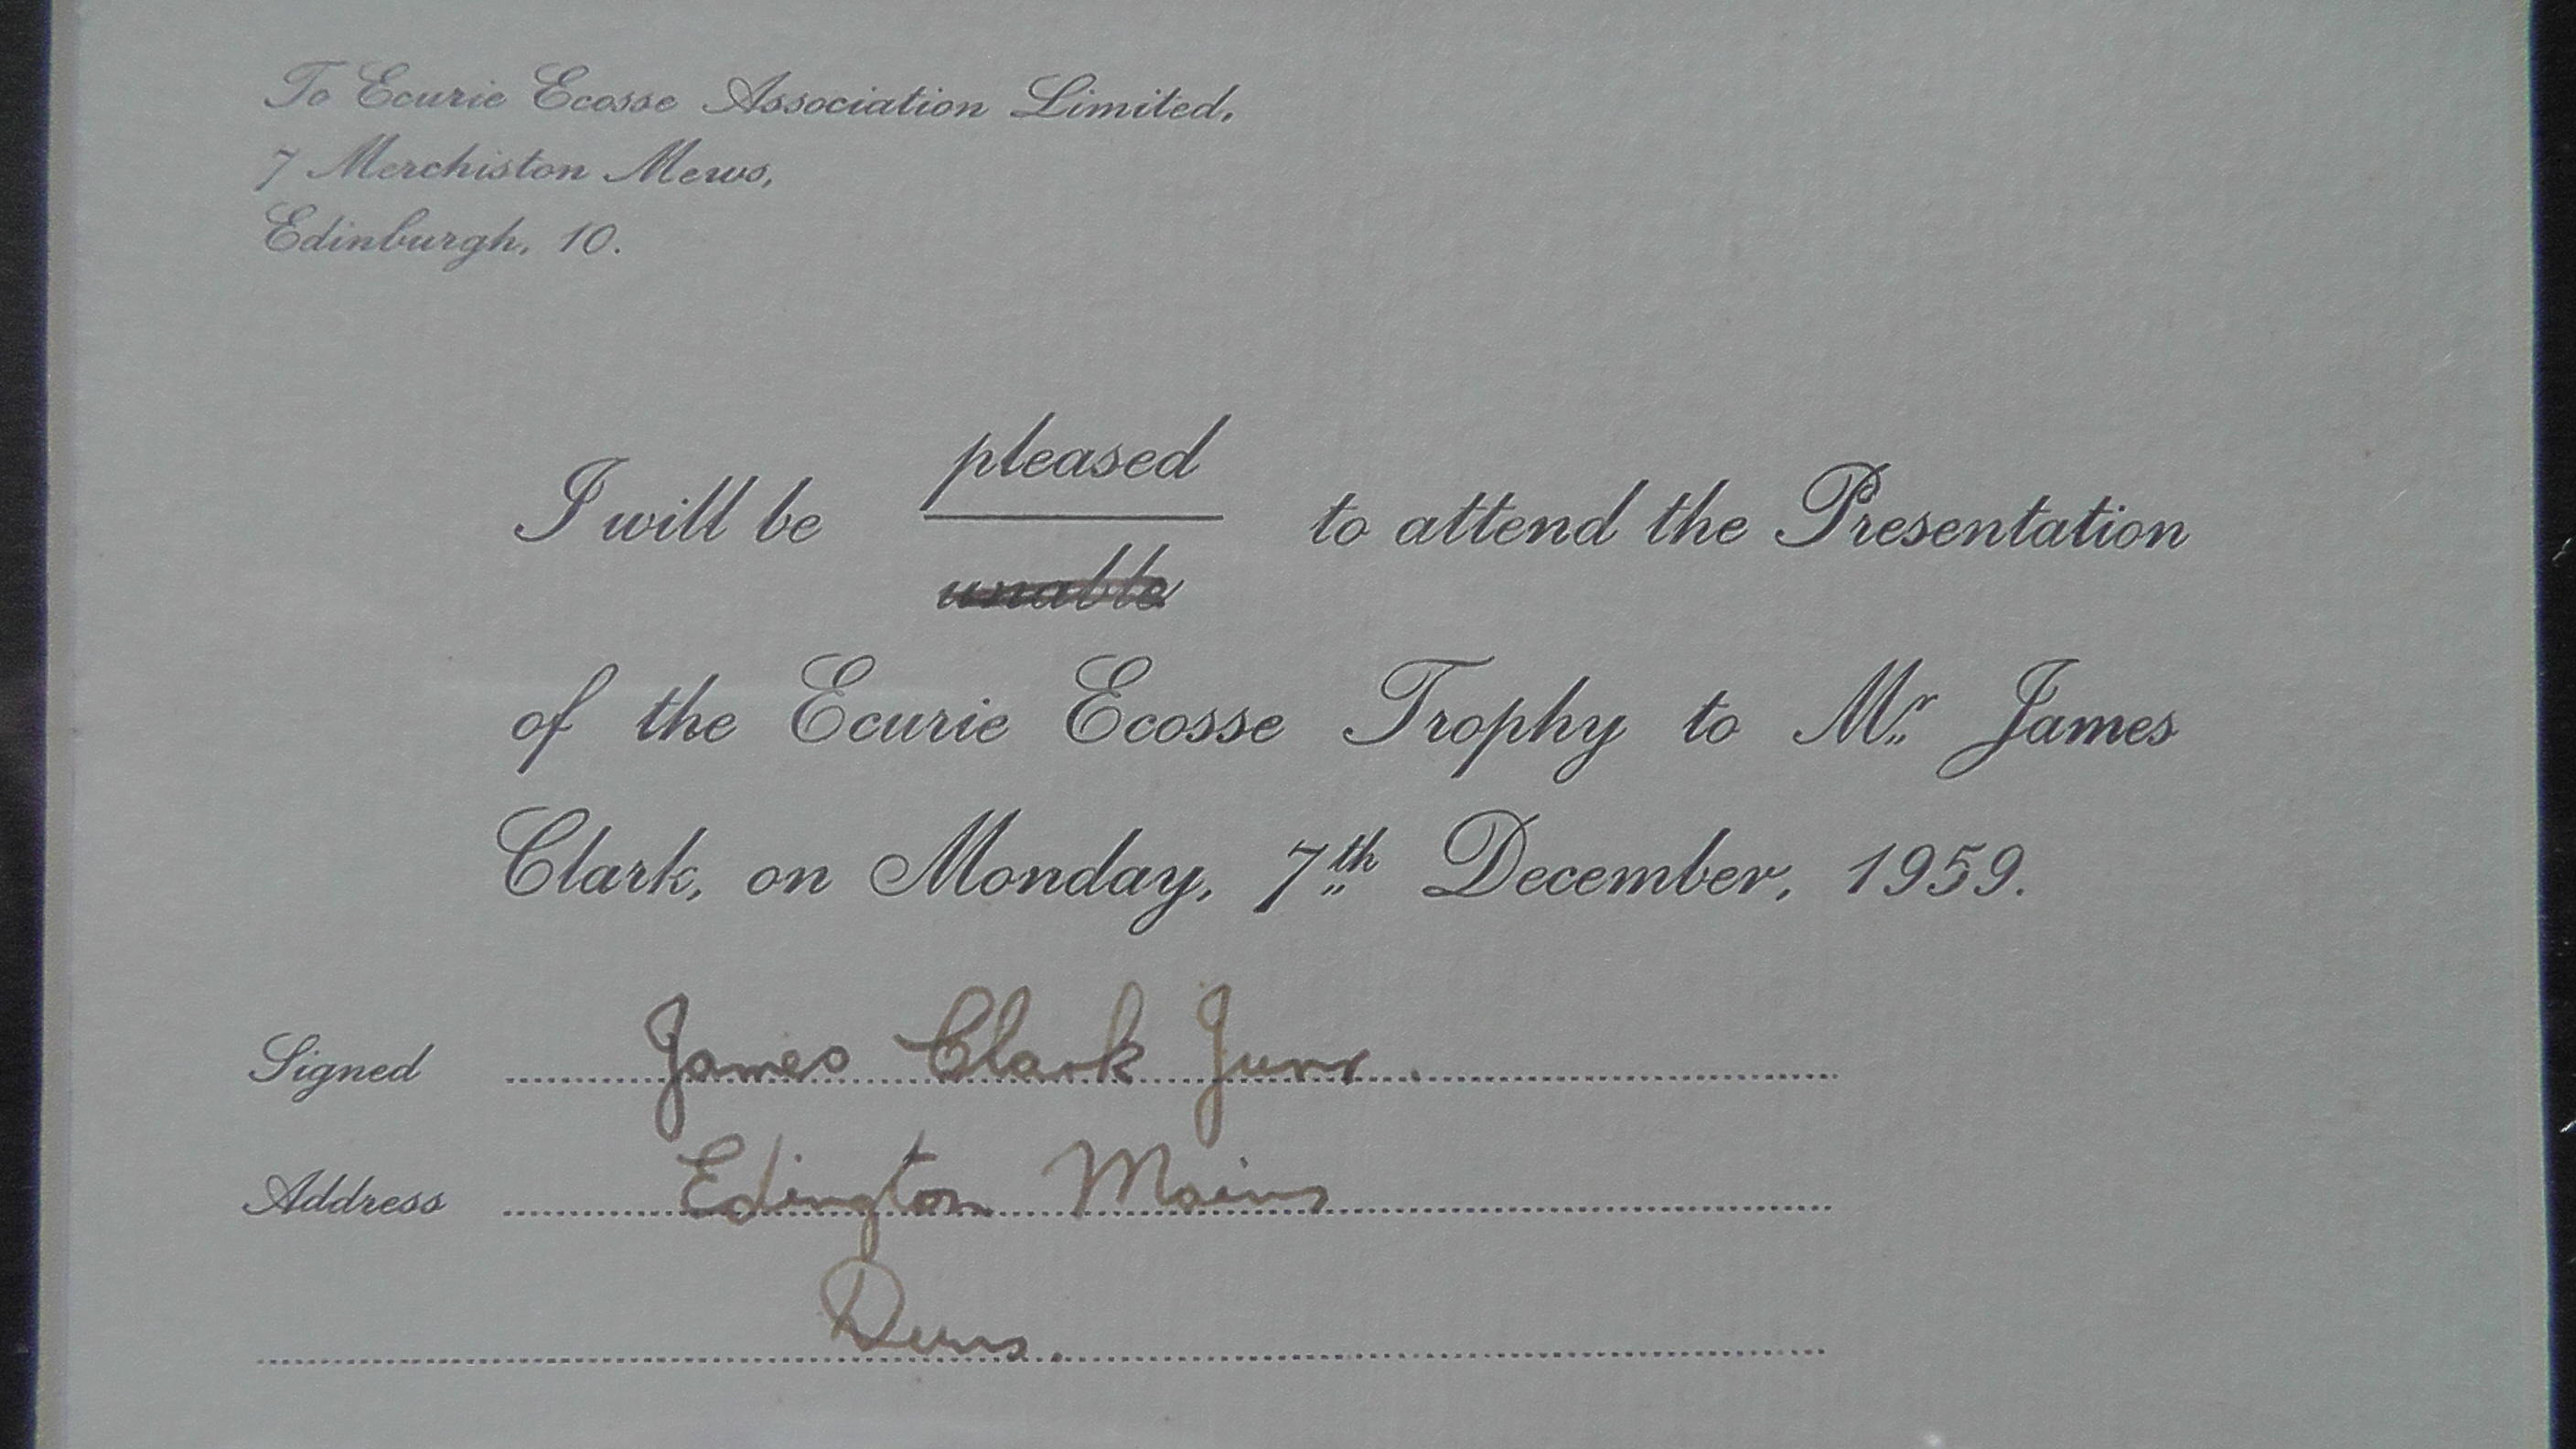 To Ecurie Ecosse Association Limited,
7 Merchiston Mews,
Edinburgh, 10.
pleased
I will be to attend the Presentation
unable
of the Ecurie Ecosse Trophy to Mr James
Clark, on Monday, 7th December, 1959.
Signed James Clark Junr.
Address Edington Mains
Duns.